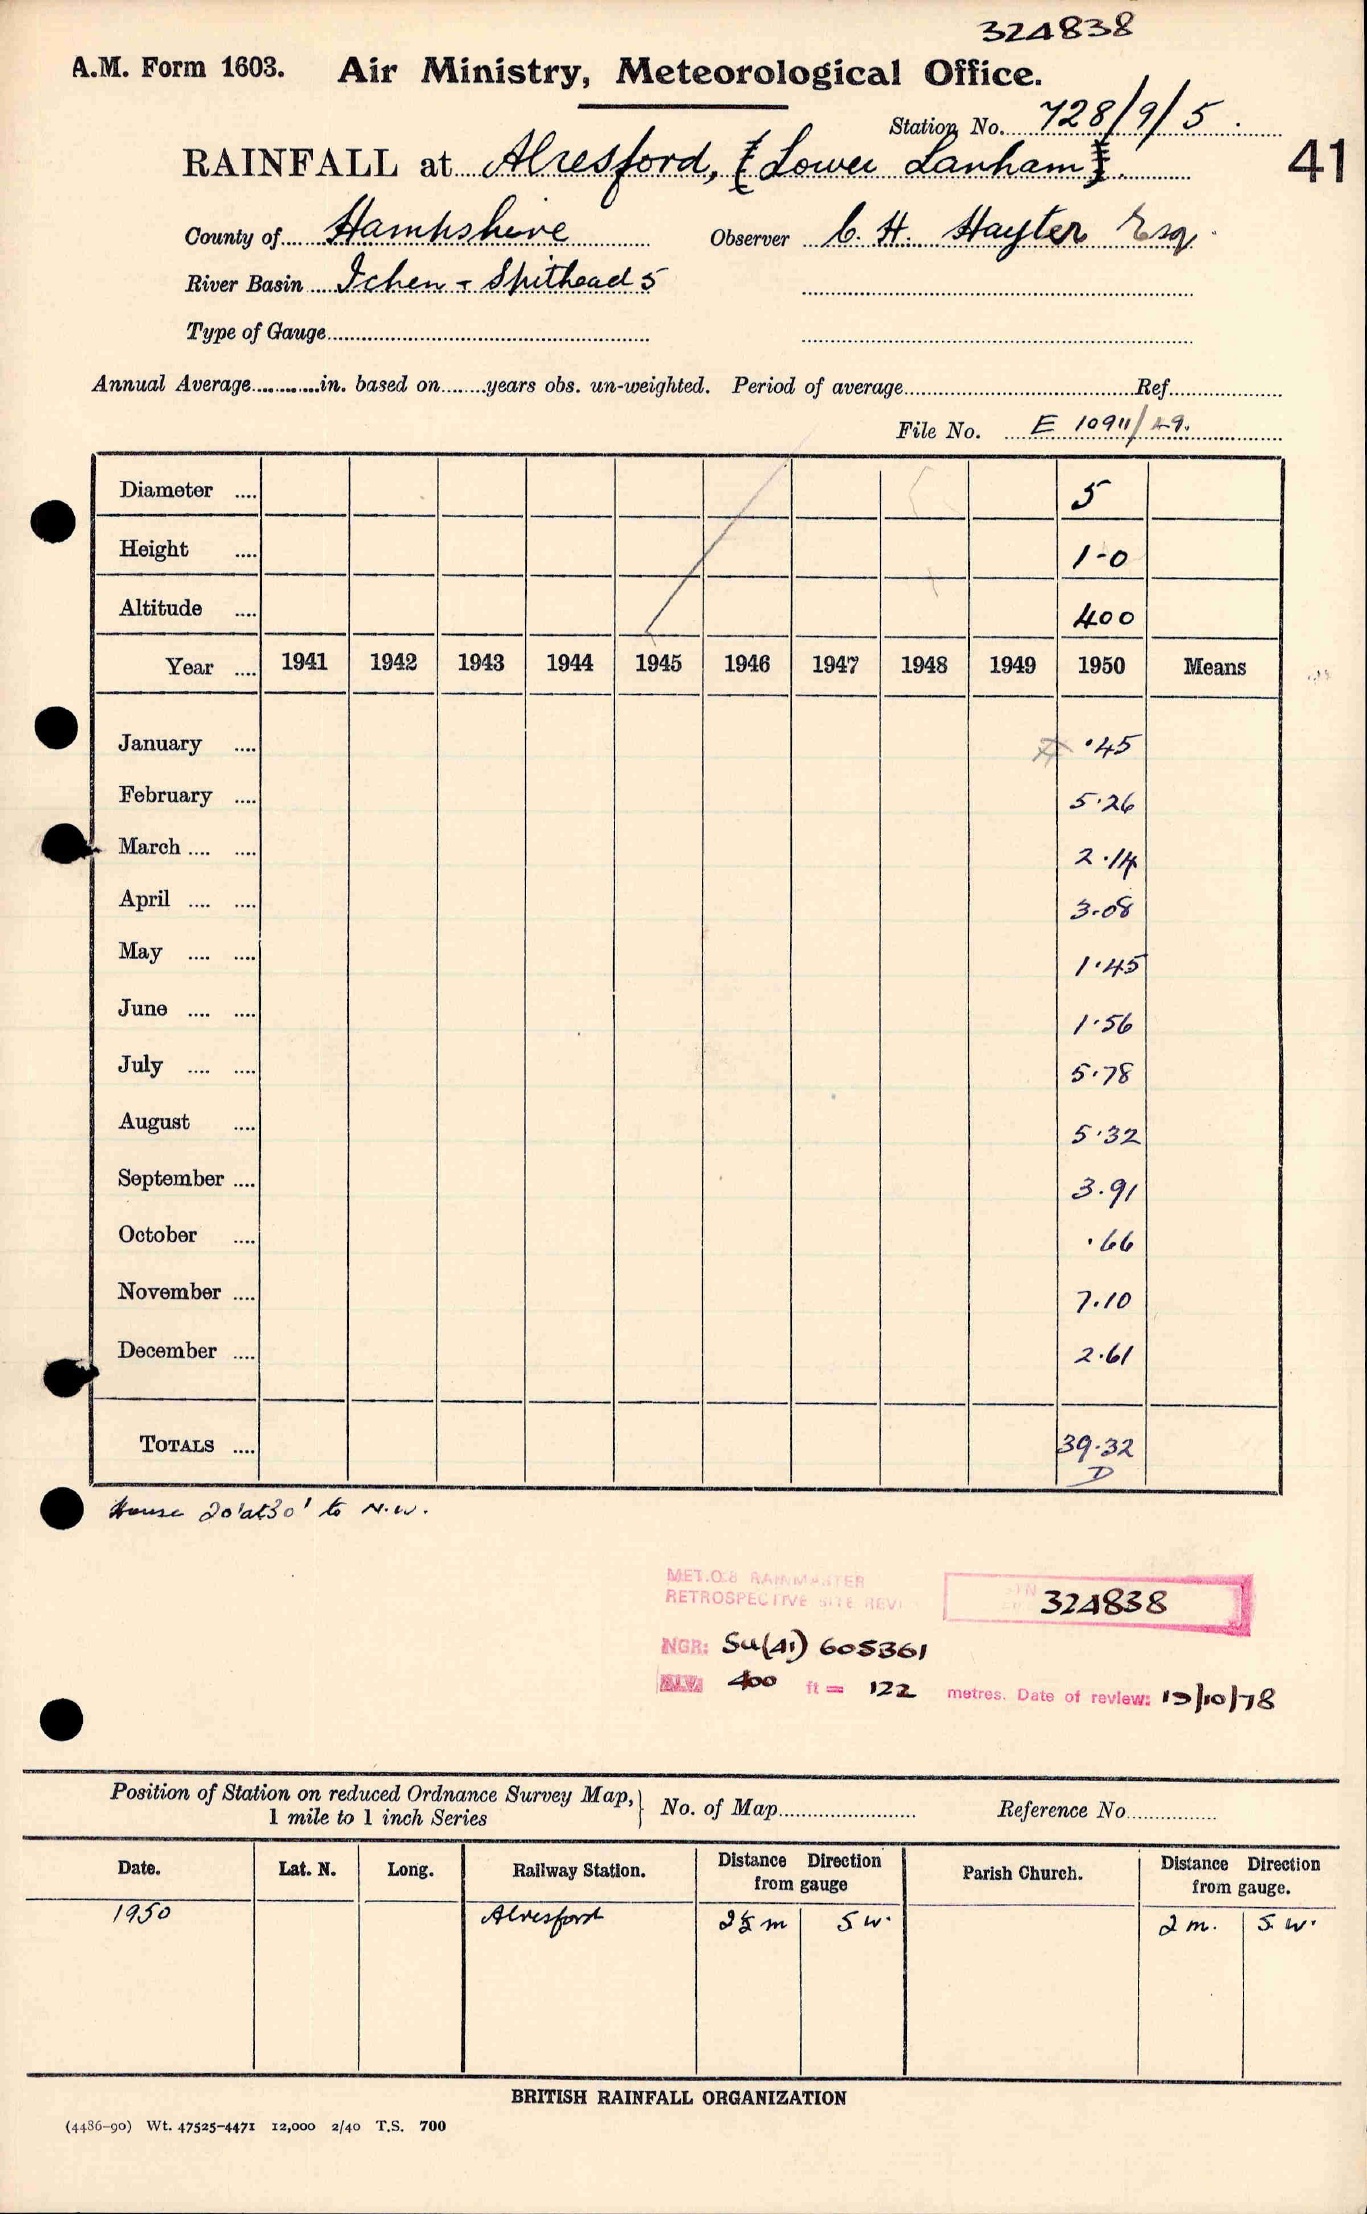 324838
A.M. Form 1603. Air Ministry, Meteorological Office.
Station No. 728/9/5.
RAINFALL at Alresford, (Lower Lanham).
41
County of Hampshire Observer C. H. Hayter Esq.
River Basin Ichen + Spithead 5
Type of Gauge
Annual Average............in. based on........years obs. un-weighted. Period of average Ref.
File No. E 10911/49.
Diameter .... 5
Height .... 1-0
Altitude .... 400
Year .... 1941 1942 1943 1944 1945 1946 1947 1948 1949 1950 Means
January .... ·45
February .... 5·26
March .... .... 2·14
April .... .... 3·08
May .... .... 1·45
June .... .... 1·56
July .... .... 5·78
August .... 5·32
September .... 3·91
October .... ·66
November .... 7·10
December .... 2·61
TOTALS .... 39·32
D
House 20' at 30' to N.W.
MET.O.8 RAINMASTER
RETROSPECTIVE SITE REVI
STN
324838
NGR: SU(41) 605361
400 ft = 122 metres. Date of review: 13/10/78
Position of Station on reduced Ordnance Survey Map, 1 mile to 1 inch Series } No. of Map Reference No.
Date. Lat. N. Long. Railway Station. Distance Direction from gauge Parish Church. Distance Direction from gauge.
1950 Alresford 2½ m S W. 2 m. S W.
BRITISH RAINFALL ORGANIZATION
(4486-90) Wt. 47525-4471 12,000 2/40 T.S. 700